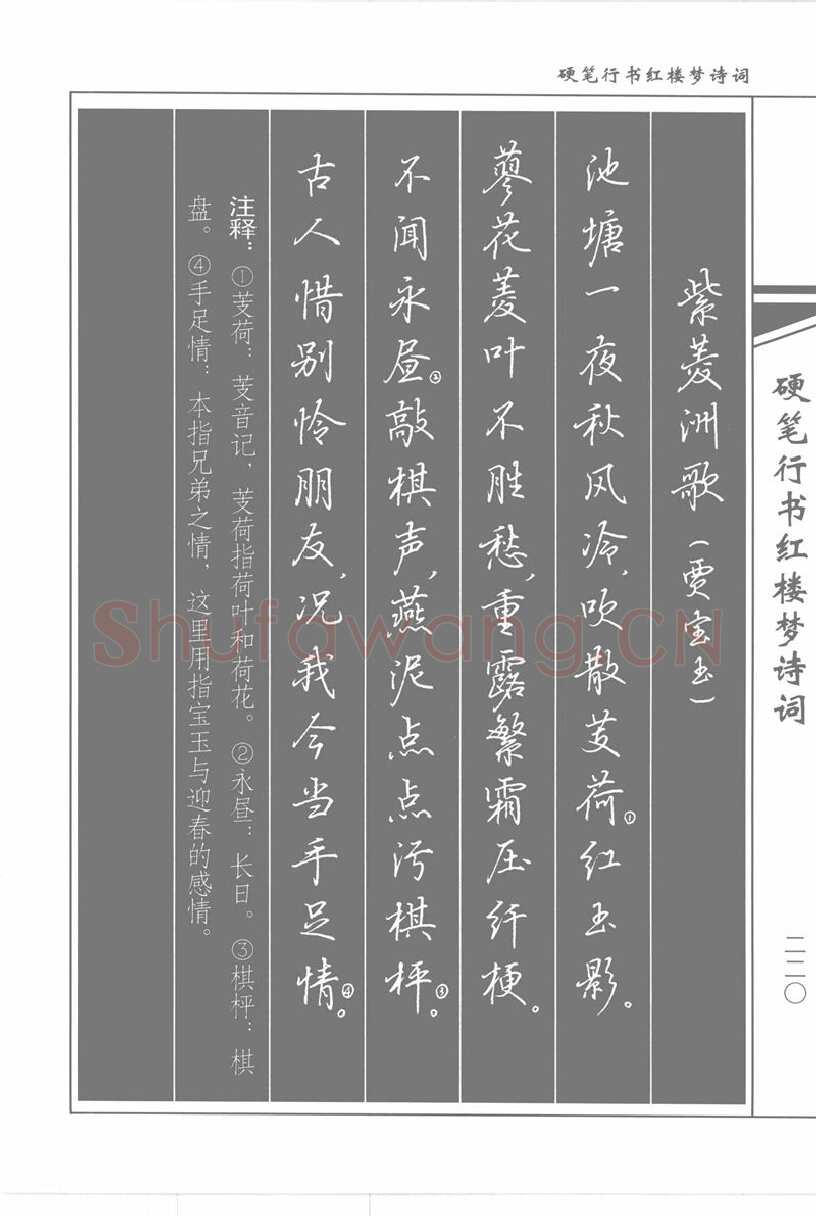 硬笔行书红楼梦诗词
紫菱洲歌（贾宝玉）
池塘一夜秋风冷，吹散芰荷①红玉影。
蓼花菱叶不胜愁，重露繁霜压纤梗。
不闻永昼②敲棋声，燕泥点点污棋枰③。
古人惜别怜朋友，况我今当手足情④。
注释：①芰荷：芰音记，芰荷指荷叶和荷花。②永昼：长日。③棋枰：棋
盘。④手足情：本指兄弟之情，这里用指宝玉与迎春的感情。
硬笔行书红楼梦诗词
二二〇
Shufawang.CN